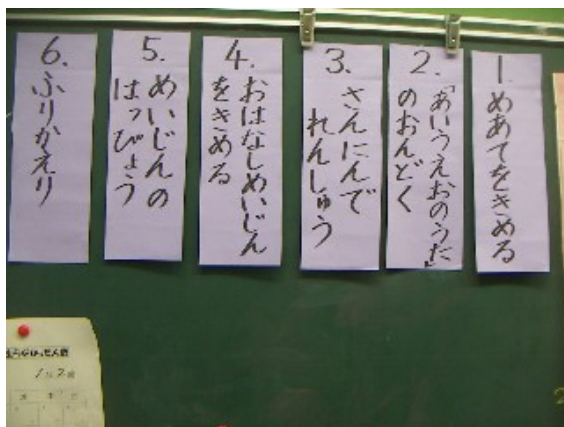 1. めあてをきめる
2. 「あいうえおのうた」
のおんどく
3. さんにんで
れんしゅう
4. おはなしめいじん
をきめる
5. めいじんの
はっぴょう
6. ふりかえり